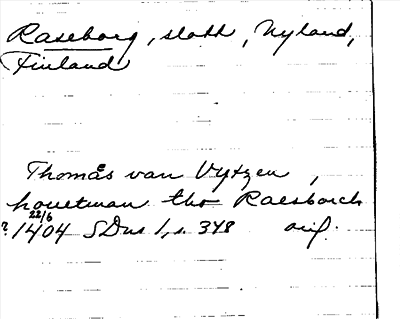 Raseborg, slott, Nyland,
Finland
Thomas van Vytzen,
houetman tho Raesborch
22/6
? 1404 SDns 1, s. 348 orig.